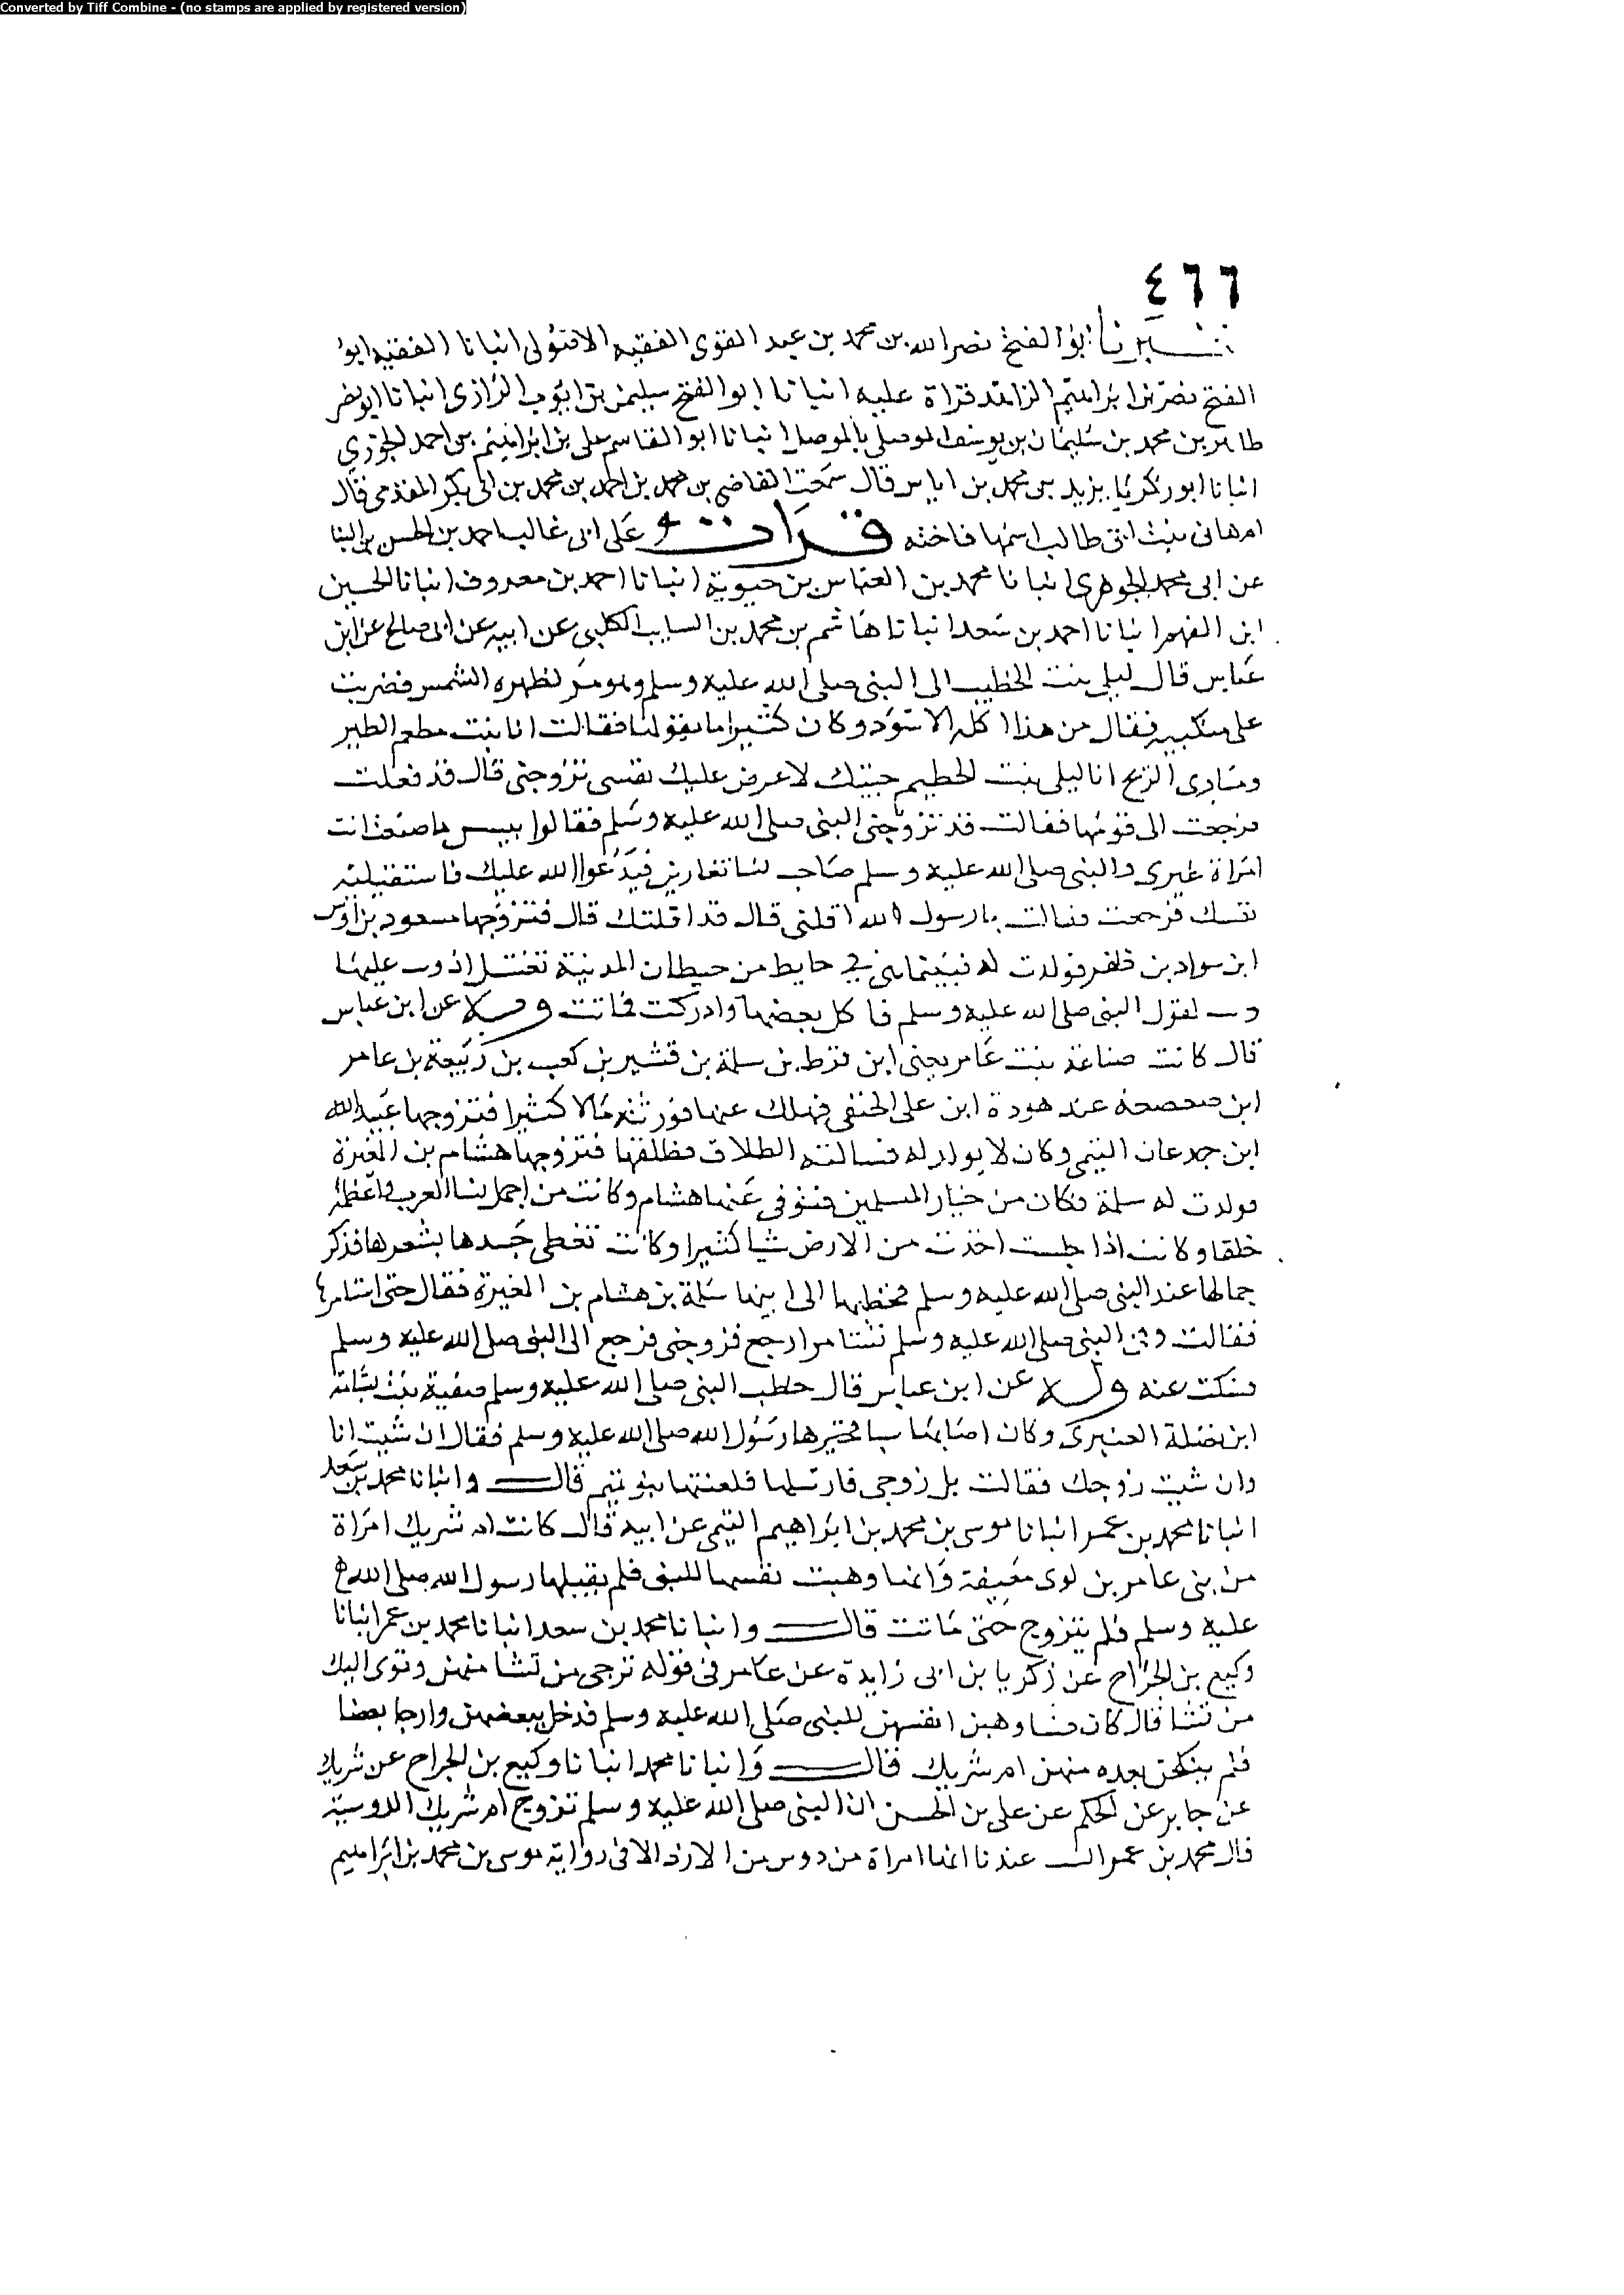 Converted by Tiff Combine - (no stamps are applied by registered version)
٤٦٦
ابو الفتح نصر الله بن محمد بن عبد القوى الفقيه انبانا الفقيه ابو
الفتح نصر بن ابراهيم الزاهد قراة عليه انبانا ابو الفتح سليمن بن ايوب الرازى انبانا ابو نصر
طاهر بن محمد بن سليمان بن يوسف الموصلى بالموصل انبانا ابو القاسم على بن ابراهيم بن احمد الجوزي
انبانا ابو زكريا يزيد بن محمد بن اياس قال سمعت القاضى بن محمد بن احمد بن محمد بن ابى بكر المقدمى قال
ام هانى بنت ابى طالب اسمها فاخته قرات على ابى غالب احمد بن الحسن بن البنا
عن ابى محمد الجوهرى انبانا محمد بن العباس بن حيوية انبانا احمد بن معروف انبانا الحسين
ابن الفهم انبانا احمد بن سعد انبانا هاشم بن محمد بن السايب الكلبى عن ابيه عن ابى صالح عن ابن
عباس قال ليلى بنت الخطيب الى النبى صلى الله عليه وسلم وهو مول ظهره الشمس فضربت
على منكبيه فقال من هذا اكله الاسود وكان كثيرا ما يقولها فقالت انا بنت مطعم الطير
ومبارى الريح انا ليلى بنت الخطيم جيتك لاعرض عليك نفسى تزوجنى قال قد فعلت
فرجعت الى قومها فقالت قد تزوجنى النبى صلى الله عليه وسلم فقالوا بيس ما صنعت انت
امراة غيرى والنبى صلى الله عليه وسلم صاحب نسا تغارين فيدعوا الله عليك فاستقيليه
نفسك فرجعت فقالت يا رسول الله اقلنى قال قد اقلتك قال فتزوجها مسعود بن اوس
ابن سواد بن ظفر فولدت له فبينما هى فى حايط من حيطان المدينة تغتسل اذ وثب عليها
لقول النبى صلى الله عليه وسلم فاكل بعضها وادركت فماتت عن ابن عباس
قال كانت ضباعة بنت عامر يعنى ابن قرط بن سلمة بن قشير بن كعب بن ربيعة بن عامر
ابن صعصعه عند هودة ابن على الحنفى فهلك عنها فورثته مالا كثيرا فتزوجها عبد الله
ابن جدعان التيمى وكان لا يولد له فسالته الطلاق فطلقها فتزوجها هشام بن المغيرة
فولدت له سلمة فكان من خيار المسلمين فتوفى عنها هشام وكانت من اجمل نسا العرب واعظمه
خلقا وكانت اذا جلست اخذت من الارض شيا كثيرا وكانت تغطى جسدها بشعرها فذكر
جمالها عند النبى صلى الله عليه وسلم فخطبها الى ابنها سلمة بن هشام بن المغيرة فقال حتى استامرها
فقالت وفى النبى صلى الله عليه وسلم تستامر ارجع فزوجنى فرجع الى النبى صلى الله عليه وسلم
فسكت عنه عن ابن عباس قال خطب النبى صلى الله عليه وسلم صفية بنت بشامة
ابن نضلة العنبرى وكان اصابها سبا فخيرها رسول الله صلى الله عليه وسلم فقال ان شيت انا
وان شيت زوجك فقالت بل زوجى فارسلها فلعنتها بنو تميم قال وانبانا محمد بن سعد
انبانا محمد بن عمر انبانا موسى بن محمد بن ابراهيم التيمى عن ابيه قال كانت ام شريك امراة
من بنى عامر بن لوى معيصية وانها وهبت نفسها للنبى فلم يقبلها رسول الله صلى الله
عليه وسلم فلم يتزوج حتى ماتت قال وانبانا محمد بن سعد انبانا محمد بن عمر انبانا
وكيع بن الجراح عن زكريا بن ابى زايدة عن عامر فى قوله ترجى من تشا منهن وتوى اليك
من تشا قال كان نسا وهبن انفسهن للنبى صلى الله عليه وسلم فدخل ببعضهن وارجا بعضا
فلم ينكحن بعده منهن ام شريك قال وانبانا محمد انبانا وكيع بن الجراح عن شريك
عن جابر عن الحكم عن على بن الحسن ان النبى صلى الله عليه وسلم تزوج ام شريك الدوسية
قال محمد بن عمر عندنا انها امراة من دوس من الازد الا فى رواية موسى بن محمد بن ابراهيم